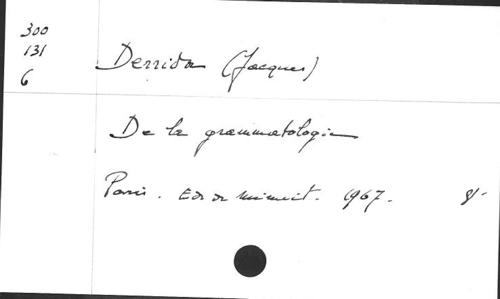 300
131
6
Derrida (Jacques)
De la grammatologie
Paris. Ed de minuit. 1967. 8°